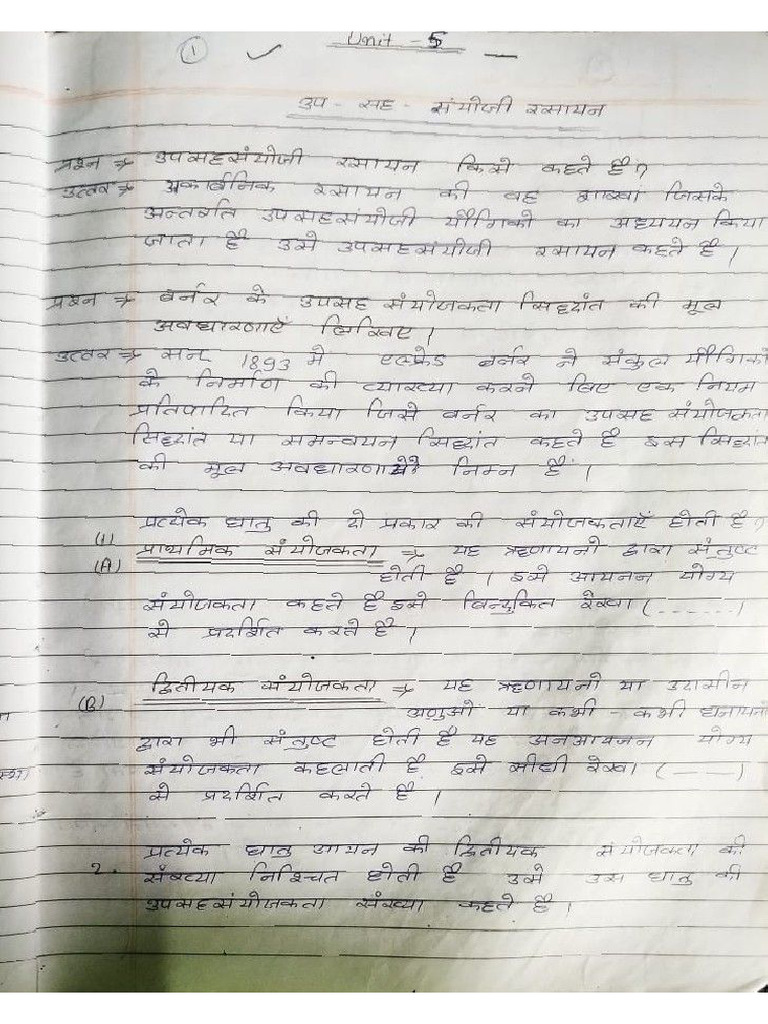 1 Unit - 5
उप - सह - संयोजी रसायन
प्रश्न → उपसहसंयोजी रसायन किसे कहते है?
उत्तर → अकार्बनिक रसायन की वह शाखा जिसके
अन्तर्गत उपसहसंयोजी यौगिको का अध्ययन किया
जाता है उसे उपसहसंयोजी रसायन कहते है।
प्रश्न → वर्नर के उपसह संयोजकता सिद्धांत की मूल
अवधारणाएँ लिखिए।
उत्तर → सन् 1893 में एल्फ्रेड वर्नर ने संकुल यौगिको
के निर्माण की व्याख्या करने लिए एक नियम
प्रतिपादित किया जिसे वर्नर का उपसह संयोजकता
सिद्धांत या समन्वयन सिद्धांत कहते है इस सिद्धांत
की मूल अवधारणाये निम्न है।
(1) प्रत्येक धातु की दो प्रकार की संयोजकताएँ होती है?
(A) प्राथमिक संयोजकता → यह ऋणायनो द्वारा संतुष्ट
होती है। इसे आयनन योग्य
संयोजकता कहते है इसे बिन्दुकित रेखा (......)
से प्रदर्शित करते है।
(B) द्वितीयक संयोजकता → यह ऋणायनो या उदासीन
अणुओ या कभी - कभी धनायनो
द्वारा भी संतुष्ट होती है यह अनआयनन योग्य
संयोजकता कहलाती है इसे सीधी रेखा (———)
से प्रदर्शित करते है।
2. प्रत्येक धातु आयन की द्वितीयक संयोजकता की
संख्या निश्चित होती है उसे उस धातु की
उपसहसंयोजकता संख्या कहते है।